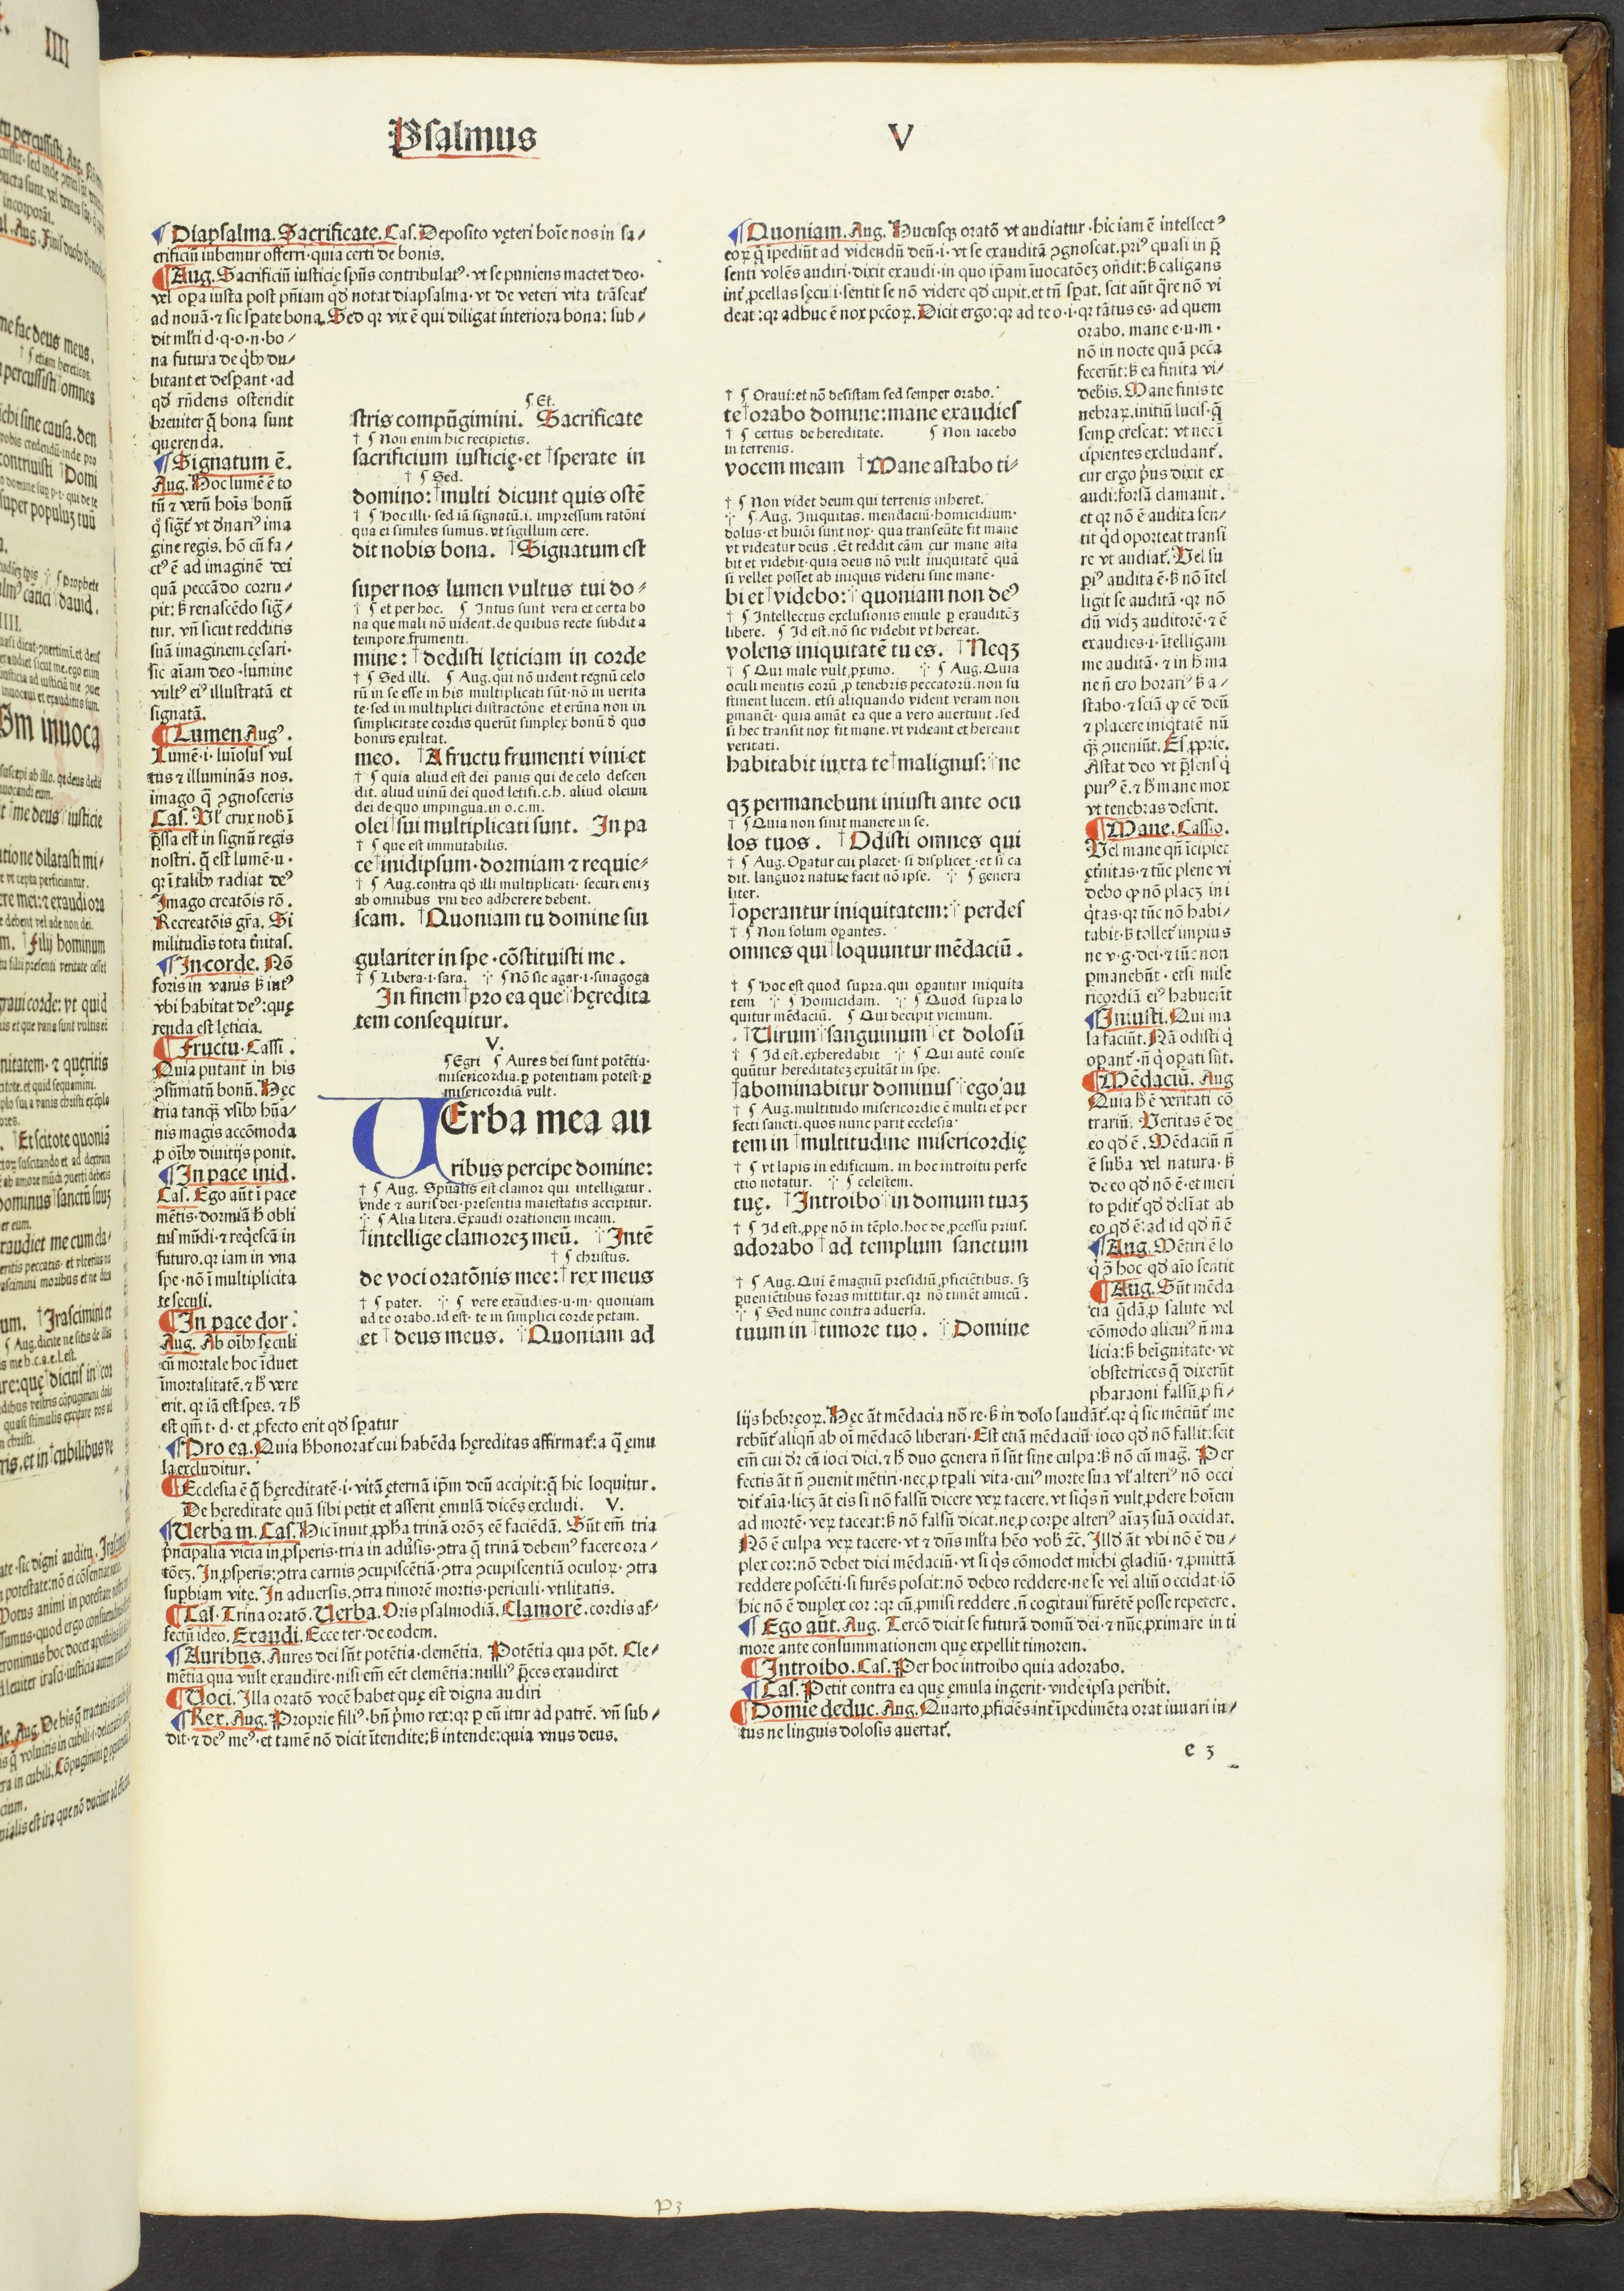 Psalmus V
¶ Diapsalma. Sacrificate. Cas. Deposito vęteri hoīe nos in sa⸗
crificiū iubemur offerri·quia certi de bonis.
¶ Aug. Sacrificiū iusticię spūs contribulatꝰ·vt se puniens mactet deo·
vel oꝑa iusta post pñiam qd̓ notat diapsalma·vt de veteri vita trāseat᷑
ad nouā·⁊ sic sperate bona. Sed qr vix ē qui diligat interiora bona: sub⸗
dit ml̓ti d·q·o·n·bo⸗
na futura de qͥbꝰ du⸗
bitant et desꝑant·ad
qd̓ rñdens ostendit
breuiter q̄ bona sunt
querenda.
¶ Signatum ē.
Aug. Hoc lumē ē to
tū ⁊ verū hoīs bonū
q̓ sigt᷑ vt d̓nariꝰ ima
gine regis. hō cū fa⸗
ctꝰ ē ad imaginē dei
quā peccādo corru⸗
pit: s̓ renascēdo sig̃⸗
tur. vñ sicut redditis
suā imaginem cęsari·
sic aīam deo·lumine
vultꝰ eiꝰ illustratā et
signatā.
¶ Lumen Augꝰ.
Lumē·i·luīosus vul
tus ⁊ illuminās nos.
imago q̄ ꝯgnosceris
Cas. Vl̓ crux nob̓ ī
p̄ssa est in signū regis
nostri. q̄ est lumē·u·
qr ī talibꝰ radiat deꝰ
Imago creatōis rō.
Recreatōis gr̄a. Si
militudīs tota t̓nitas.
¶ In corde. Nō
foris in vanis s̓ intꝰ
vbi habitat deꝰ: quę
renda est lęticia.
¶ Fructu. Cassi.
Quia putant in his
ꝯsūmatū bonū. Hęc
tria tanq̄ʒ vsibꝰ hūa⸗
nis magis accōmoda
ꝓ oībꝰ diuitijs ponit.
¶ In pace inid.
Cas. Ego aūt ī pace
mētis·dormiā h̓ obli
tus mūdi·⁊ reqͥescā in
futuro. qr iam in vna
spe·nō ī multiplicita
te sęculi.
¶ In pace dor.
Aug. Ab oībꝰ sęculi
cū mortale hoc īduet
īmortalitatē. ⁊ h̓ vere
erit. qr iā est spes. ⁊ h̓
est qm̄ t·d·et ꝓfecto erit qd̓ speratur
¶ Pro ea. Quia h̓ honorat᷑ cui habēda hęreditas affirmat᷑: a q̄ ęmu
la excluditur.
¶ Ecclesia ē q̄ hęreditatē·i·vitā ęternā ip̄m deū accipit: q̄ hic loquitur.
De hereditate quā sibi petit et asserit ęmulā dicēs excludi. V.
¶ Verba m. Cas. Hic īnuit ꝓph̓a trinā orōʒ eē faciēdā. Sūt em̄ tria
p̓ncipalia vicia in ꝓsperis·tria in adu̓sis·ꝯtra q̄ trinā debemꝰ facere ora⸗
tōeʒ. In ꝓsperis: ꝯtra carnis ꝯcupiscētiā·ꝯtra ꝯcupiscentiā oculoꝝ·ꝯtra
suꝑbiam vitę. In aduersis. ꝯtra timorē mortis·periculi·vtilitatis.
¶ Cas. Trina oratō. Verba. Oris psalmodiā. Clamorē. cordis af⸗
fectū ideo. Exaudi. Ecce ter·de eodem.
¶ Auribus. Aures dei sūt potētia·clemētia. Potētia qua pōt. Cle⸗
mētia qua vult exaudire·nisi em̄ eēt clemētia: nulliꝰ p̄ces exaudiret
¶ Voci. Illa oratō vocē habet quę est digna audiri
¶ Rex. Aug. Proprie filiꝰ. bñ p̓mo rex: qr ꝑ eū itur ad patrē. vñ sub⸗
dit·⁊ deꝰ meꝰ·et tamē nō dicit ītendite: s̓ intende: quia vnus deus.
¶ Et.
stris compūgimini. Sacrificate
† ¶ Non enim hic recipietis.
sacrificium iusticię·et †sperate in
† ¶ Sed.
domino: †multi dicunt quis ostē
† ¶ Hoc illi·sed iā signatū. i. impressum ratōni
qua ei similes sumus. vt sigillum cere.
dit nobis bona. †Signatum est
super nos lumen vultus tui do⸗
† ¶ et per hoc. ¶ Intus sunt vera et certa bo
na que mali nō uident. de quibus recte subdit a
tempore frumenti.
mine: †dedisti lęticiam in corde
† ¶ Sed illi. ¶ Aug. qui nō uident regnū celo
rū in se esse in his multiplicati sūt·nō in uerita
te·sed in multiplici distractōne et erūna non in
simplicitate cordis querūt simplex bonū d̓ quo
bonus exultat.
meo. †A fructu frumenti vini et
† ¶ quia aliud est dei panis qui de celo descen
dit. aliud uinū dei quod letifi. c. h. aliud oleum
dei de quo impingua. in o. c. m.
olei †sui multiplicati sunt. In pa
† ¶ que est immutabilis.
ce †in idipsum·dormiam ⁊ requie⸗
† ¶ Aug. contra qd̓ illi multiplicati·securi eniʒ
ab omnibus vni deo adherere debent.
scam. †Quoniam tu domine sin
gulariter in spe·cōstituisti me.
† ¶ Libera·i·sara. ⁜ ¶ Nō sic agar·i·sinagoga
In finem †pro ea que ⁜hęredita
tem consequitur.
V.
¶ Egri ¶ Aures dei sunt potētia·
misericordia. ꝑ potentiam potest·ꝑ
misericordiā vult.
VErba mea au
ribus percipe domine:
† ¶ Aug. Spūalis est clamor qui intelligitur.
vnde ⁊ auris dei·presentia maiestatis accipitur.
⁜ ¶ Alia litera. Exaudi orationem meam.
†intellige clamoreʒ meū. ⁜Intē
† ¶ christus.
de voci oratōnis mee: †rex meus
† ¶ pater. ⁜ ¶ vere exaudies·u·m·quoniam
ad te orabo. id est·te in simplici corde petam.
et †deus meus. ⁜Quoniam ad
¶ Quoniam. Aug. Hucusqʒ oratō vt audiatur·hic iam ē intellectꝰ
eoꝝ q̄ īpediūt ad videndū deū·i·vt se exauditā ꝯgnoscat. priꝰ quasi in p̄
senti volēs audiri·dixit exaudi·in quo ip̄am īuocatōeʒ oñdit: s̓ caligans
int̓ ꝓcellas sęculi·sentit se nō videre qd̓ cupit. et tñ sꝑat. scit aūt q̄re nō vi
deat: qr adhuc ē nox pccōꝝ. Dicit ergo: qr ad te o·i·qr tātus es·ad quem
orabo. mane e·u·m·
nō in nocte quā pccā
fecerūt: s̓ ea finita vi⸗
debis. Mane finis te
nebraꝝ. initiū lucis·q̄
semꝑ crescat: vt nec ī
cipientes excludant᷑.
cur ergo p̓us dixit ex
audi: forsā clamauit.
et qr nō ē audita sen⸗
tit qd̓ oporteat transi
re vt audiat᷑. Vel su
ꝑiꝰ audita ē·s̓ nō ītel
ligit se auditā·qr nō
dū vidʒ auditorē·⁊ ē
exaudies·i·ītelligam
me auditā·⁊ in h̓ ma
ne ñ ero horariꝰ s̓ a⸗
stabo·⁊ sciā ꝙ cē deū
⁊ placere iniqͥtatē nū
q̄ʒ ꝯueniūt. Es ꝓprie.
Astat deo vt p̄sens qͥ
purꝰ ē. ⁊ h̓ mane mox
vt tenebras deserit.
¶ Mane. Cassio.
Vel mane qñ īcipiet
ęt̓nitas·⁊ tūc plene vi
debo ꝙ nō placʒ in i
qͥtas·qr tūc nō habi⸗
tabit·s̓ tollet᷑ impius
ne v·g·dei·⁊ tūc non
ꝑmanebūt·etsi mise
ricordiā eiꝰ habuerīt
¶ Iniusti. Qui ma
la faciūt. Nā odisti qͥ
oꝑant᷑·ñ qͥ oꝑati sūt.
¶ Mēdaciū. Aug
Quia h̓ ē veritati cō
trariū. Veritas ē de
eo qd̓ ē. Mēdaciū ñ
ē sub̓a vel natura·s̓
de eo qd̓ nō ē·et meri
to ꝑdit᷑ qd̓ d̓clīat ab
eo qd̓ ē: ad id qd̓ ñ ē
¶ Aug. Mētiri ē lo
qͥ ꝯ̓ hoc qd̓ aīo sentit
¶ Aug. Sūt mēda
cia q̄dā ꝓ salute vel
cōmodo alicuiꝰ ñ ma
licia: s̓ beīgnitate·vt
obstetrices q̄ dixerūt
pharaoni falsū, ꝓ fi⸗
lijs hebręoꝝ. Hęc āt mēdacia nō re·s̓ in dolo laudāt᷑. qr qͥ sic mētiūt᷑ me
rebūt᷑ aliqñ ab oī mēdacō liberari·Est etiā mēdaciū ioco qd̓ nō fallit: scit
em̄ cui dr̄ cā ioci dici. ⁊ h̓ duo genera ñ sūt sine culpa: s̓ nō cū mag̃. Per
fectis āt ñ ꝯuenit mētiri·nec ꝓ tꝑali vita·cuiꝰ morte sua vl̓ alteriꝰ nō occi
dit᷑ aīa·licʒ āt eis si nō falsū dicere veꝝ tacere. vt siqͥs ñ vult ꝓdere hoīem
ad mortē·veꝝ taceat: s̓ nō falsū dicat. ne ꝓ corpe alteriꝰ aīaʒ suā occidat.
Nō ē culpa veꝝ tacere·vt ⁊ dñs ml̓ta hēo vob̓ ⁊c̄. Illd̓ āt vbi nō ē du⸗
plex cor: nō debet dici mēdaciū·vt si qͥs cōmodet michi gladiū·⁊ ꝓmittā
reddere poscēti·si furēs poscit: nō debeo reddere·ne se vel aliū occidat·iō
hic nō ē duplex cor: qr cū ꝓmisi reddere. ñ cogitaui furētē posse repetere.
¶ Ego aūt. Aug. Tercō dicit se futurā domū dei·⁊ nūc ꝓximare in ti
more ante consummationem quę expellit timorem.
¶ Introibo. Cas. Per hoc introibo quia adorabo.
¶ Cas. Petit contra ea quę ęmula ingerit·vnde ipsa peribit.
¶ Domīe deduc. Aug. Quarto ꝓficiēs īnt̓ īpedimēta orat iuuari in⸗
tus ne linguis dolosis auertat᷑.
† ¶ Oraui: et nō desistam sed semper orabo.
te †orabo domine: mane exaudies
† ¶ certus de hereditate. ¶ Non iacebo
in terrenis.
vocem meam †Mane astabo ti⸗
† ¶ Non videt deum qui terrenis inheret.
⁜ ¶ Aug. Iniquitas. mendaciū·homicidium·
dolus·et huiōi sunt nox·qua transeūte fit mane
vt videatur deus. Et reddit cām cur mane asta
bit et videbit·quia deus nō vult iniquitatē quā
si vellet posset ab iniquis videri sine mane·
bi et †videbo: ⁜quoniam non deꝰ
† ¶ Intellectus exclusionis emule ꝑ exauditōʒ
libere. ¶ Id est. nō sic videbit vt hereat.
volens iniquitatē tu es. †Neqʒ
† ¶ Qui male vult ꝓximo. ⁜ ¶ Aug. Quia
oculi mentis eorū ꝓ tenebris peccatorū. non su
stinent lucem. etsi aliquando vident veram non
ꝑmanēt·quia amāt ea que a vero auertunt. sed
si hec transit nox fit mane. vt videant et hereant
veritati.
habitabit iuxta te †malignus: ⁜ne
qʒ permanebunt iniusti ante ocu
† ¶ Quia non sinit manere in se.
los tuos. †Odisti omnes qui
† ¶ Aug. Oꝑatur cui placet·si displicet·et si ca
dit. languor nature facit nō ipse. ⁜ ¶ genera
liter.
†operantur iniquitatem: ⁜perdes
† ¶ Non solum oꝑantes.
omnes qui †loquuntur mēdaciū.
† ¶ Hoc est quod supra. qui oꝑantur iniquita
tem ⁜ ¶ Homicidam. ⁜ ¶ Quod supra lo
quitur mēdaciū. ¶ Qui decipit vicinum.
†Uirum ⁜sanguinum ⁜et dolosū
† ¶ Id est. exheredabit ⁜ ¶ Qui autē conse
quūtur hereditateʒ exultāt in spe.
†abominabitur dominus ⁜ego au
† ¶ Aug. multitudo misericordie ē multi et per
fecti sancti. quos nunc parit ecclesia·
tem in †multitudine misericordię
† ¶ vt lapis in edificium. in hoc introitu perfe
ctio notatur. ⁜ ¶ celestem.
tuę. †Introibo ⁜in domum tuaʒ
† ¶ Id est, ꝓpe nō in tēplo. hoc de ꝓcessu prius.
adorabo †ad templum sanctum
† ¶ Aug. Qui ē magnū presidiū ꝓficiētibus. sʒ
ꝑuenientibus foras mittitur. qr nō timēt amicū.
⁜ ¶ Sed nunc contra aduersa.
tuum in †timore tuo. ⁜Domine
e 3